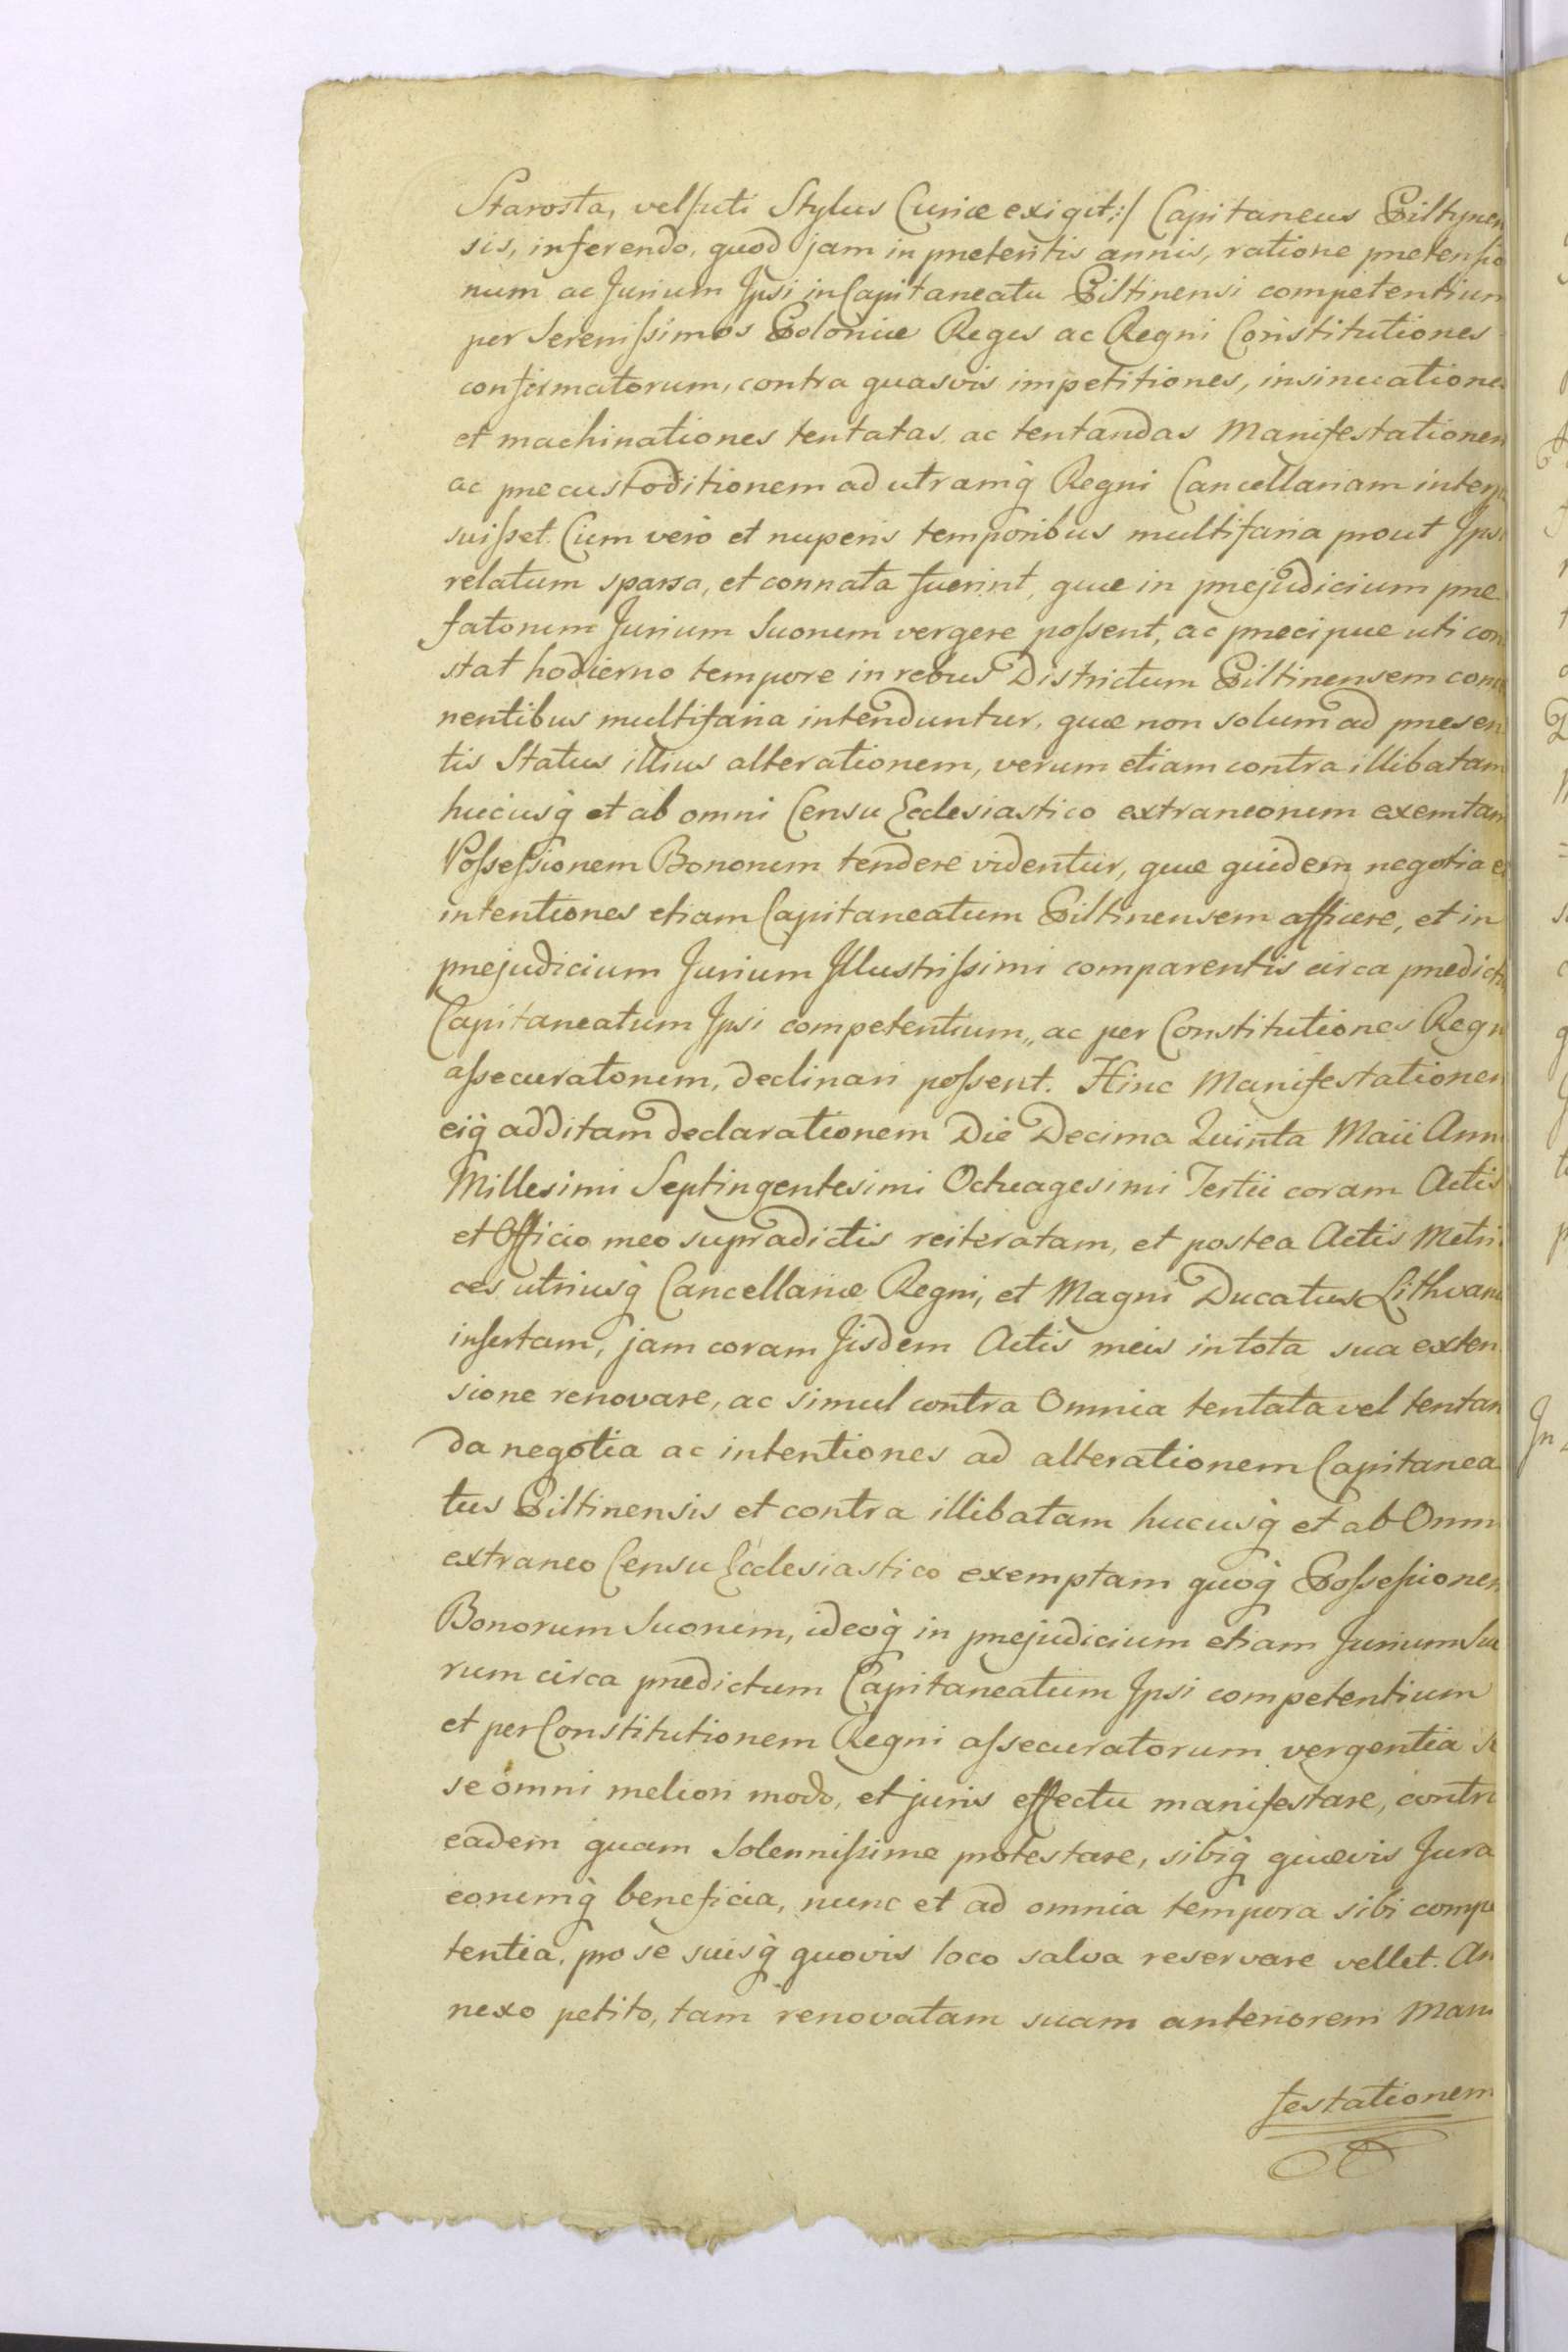 Starosta, vel /uti Stylus Curiæ exigit:/ Capitaneus Piltynen
sis, inferendo, quod jam in præteritis annis, ratione prætensio
num ac Jurium Ipsi in Capitaneatu Piltinensi competentium
per Serenissimos Poloniæ Reges ac Regni Constitutiones
confirmatorum, contra quasvis impetitiones, insinuationes
et machinationes tentatas ac tentandas Manifestationem
ac præcustoditionem ad utramq̀ Regni Cancellariam interpo
suisset. Cum verò et nuperis temporibus multifaria prout Ipsi
relatum sparsa, et connata fuerint, quæ in præjudicium præ
fatorum Jurium Suorum vergere possent, ac præcipue uti con
stat hodierno tempore in rebus Districtum Piltinensem conce
nentibus multifaria intenduntur, quæ non solum ad præsen
tis Status illius alterationem, verum etiam contra illibatam
hucusq̀ et ab omni Censu Ecclesiastico extraneorum exemtam
Possessionem Bonorum tendere videntur, quæ quidem negotia et
intentiones etiam Capitaneatum Piltinensem afficere, et in
præjudicium Jurium Illustrissimi comparentis circa prædictu
Capitaneatum Ipsi competentium, ac per Constitutiones Regni
assecuratorum, declinari possent. Hinc Manifestationem
eiq̀ additam declarationem Die Decima Quinta Maii Anni
Millesimi Septingentesimi Octuagesimi Tertii coram Actis
et Officio meo supradictis reiteratam, et postea Actis Metri
ces utriusq̀ Cancellariæ Regni, et Magni Ducatus Lithvani
insertam, jam coram Iisdem Actis meis in tota sua exten
sione renovare, ac simul contra Omnia tentata vel tentan
da negotia ac intentiones ad alterationem Capitanea
tus Piltinensis et contra illibatam hucusq̀ et ab Omni
extraneo Censu Ecclesiastico exemptam quoq̀ Possessionem
Bonorum Suorum, ideoq̀ in præjudicium etiam Jurium Suo
rum circa prædictum Capitaneatum Ipsi competentium
et per Constitutionem Regni assecuratorum vergentia se
se omni meliori modo, et juris effectu manifestare, contra
eadem quam Solennissime protestare, sibiq̀ quævis Jura
eorumq̀ beneficia, nunc et ad omnia tempora sibi compe
tentia, pro se suisq̀ quovis loco salva reservare vellet. An
nexo petito, tam renovatam suam anteriorem Mani
festationem